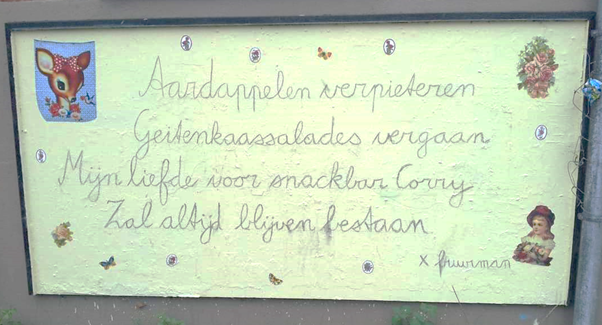 Aardappelen verpieteren
Geitenkaassalades vergaan
Mijn liefde voor snackbar Corry
Zal altijd blijven bestaan
x fhuurman